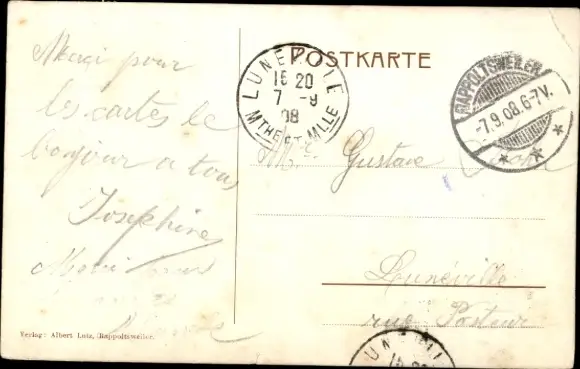 Merci pour
les cartes le
bonjour a tous
Josephine
Verlag: Albert Lutz, Rappoltsweiler.
POSTKARTE
LUNEVILLE
15 20
7 -9
08
MTHE ET MLLE
RAPPOLTSWEILER
-7.9.08.6-7V.
Gustave
Lunéville
rue Pasteur